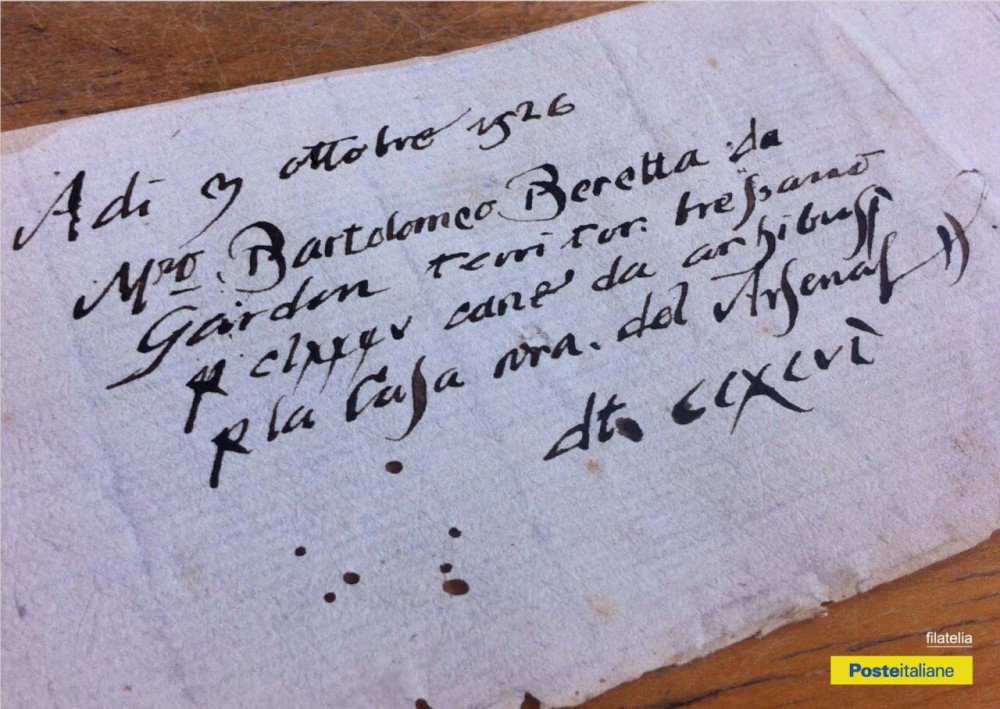 Adi 3 ottobre 1526
Mro. Bartolomeo Beretta da
Gardon territor. bressano
p clxxxv cane da archibusi
p la Casa nra. del Arsenal
dt. ccxcvi
filatelia
Posteitaliane